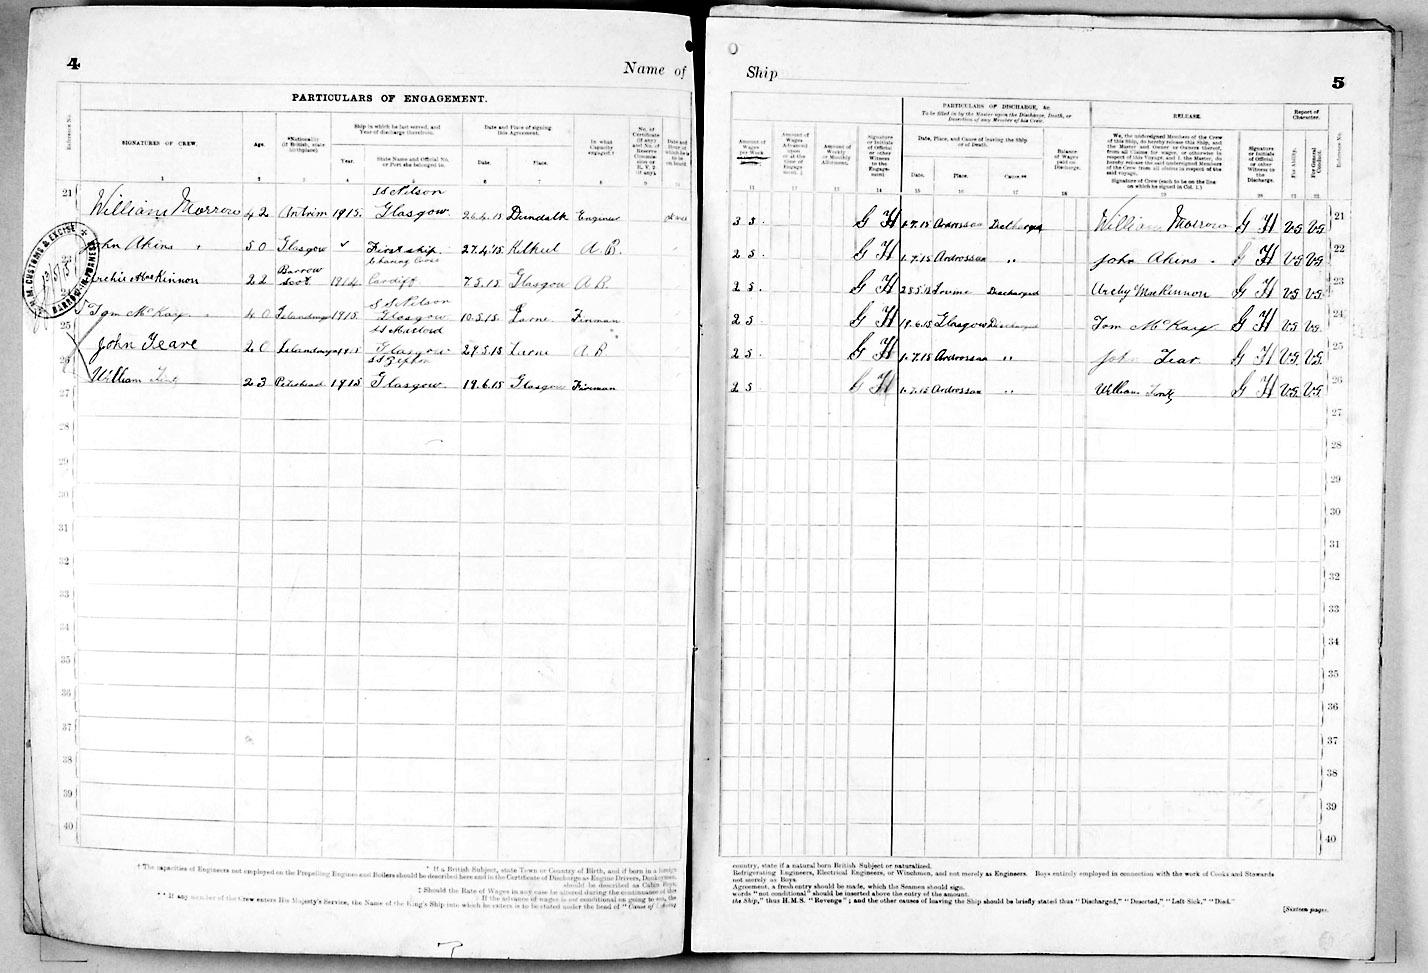 4
Name of
PARTICULARS OF ENGAGEMENT.
Reference No.
SIGNATURES OF CREW.
Age.
*Nationality
(if British, state
birthplace).
Ship in which he last served, and
Year of discharge therefrom.
Year.
State Name and Official No.
or Port she belonged to.
Date and Place of signing
this Agreement.
Date.
Place.
In what
Capacity
engaged.†
No. of
Certificate
(if any)
1 2 3 4 5 6 7 8 9
21 William Morrow 42 Antrim 1915 SS Nelson Glasgow 26.4.15 Dundalk Engineer
John Akins 50 Glasgow First ship 27.4.15 Kilkeel A.B.
Archie MacKinnon 22 1914 Charing Cross Cardiff 7.5.15 Glasgow A.B.
Tom McKay 40 1915 SS Nelson Glasgow 10.5.15 Larne Fireman
25 John Teare 20 Glasgow Larne A B
26 William 23 1915 Glasgow 19.6.15 Glasgow Fireman
27
28
29
30
31
32
33
34
35
36
37
38
39
40
H.M. CUSTOMS & EXCISE
BARROW-IN-FURNESS
† The capacities of Engineers not employed on the Propelling Engines and Boilers should be described here and in the Certificate of Discharge as Engine Drivers, Donkeymen,
* If a British Subject, state Town or Country of Birth, and if born in a foreign
should be described as Cabin Boys.
‡ Should the Rate of Wages in any case be altered during the continuance of the
|| If the advance of wages is not conditional on going to sea, the
** If any member of the Crew enters His Majesty's Service, the Name of the King's Ship into which he enters is to be stated under the head of "Cause of
Ship
5
PARTICULARS OF DISCHARGE, &c.
To be filled in by the Master upon the Discharge, Death, or
Desertion of any Member of his Crew.
Date, Place, and Cause of leaving the Ship
or of Death.
Date.
Place.
Cause.**
RELEASE.
We, the undersigned Members of the Crew
of this Ship, do hereby release this Ship, and
the Master and Owner or Owners thereof,
from all Claims for wages, or otherwise in
respect of this Voyage, and I, the Master, do
hereby release the said undersigned Members
of the Crew from all claims in respect of the
said voyage.
Signature of Crew (each to be on the line
on which he signed in Col. 1.)
Report of
Character.
For Ability.
For General
Conduct.
Reference No.
Amount of
Wages
per Week
Amount of
Wages
Advanced
Amount of
Weekly
or Monthly
Allotment.
Signature
or Initials
of Official
or other
Witness
to the
Engage-
ment.
Balance
of Wages
paid on
Discharge.
Signature
or Initials
of Official
or other
Witness to
the
Discharge.
11 12 13 14 15 16 17 18 19 20 21 22
3 5 G H 1.7.15 Ardrossan Discharged William Morrow G H V.G V.G 21
2 5 G H 1.7.15 Ardrossan " John Akins G H V.G V.G 22
2 5 G H 28.5.15 Irvine Discharged MacKinnon G H V.G V.G 23
2 5 G H 19.6.15 Glasgow Discharged Tom McKay G H V.G V.G 24
2 5 G H 1.7.15 Ardrossan " John Tear G H V.G V.G 25
2 5 G H 1.7.15 Ardrossan " William G H V.G V.G 26
27
28
29
30
31
32
33
34
35
36
37
38
39
40
country, state if a natural born British Subject or naturalized.
Refrigerating Engineers, Electrical Engineers, or Winchmen, and not merely as Engineers. Boys entirely employed in connection with the work of Cooks and Stewards
not merely as Boys.
Agreement, a fresh entry should be made, which the Seamen should sign.
words "not conditional" should be inserted above the entry of the amount.
the Ship," thus H.M.S. "Revenge"; and the other causes of leaving the Ship should be briefly stated thus "Discharged," "Deserted," "Left Sick," "Died."
[Sixteen pages.